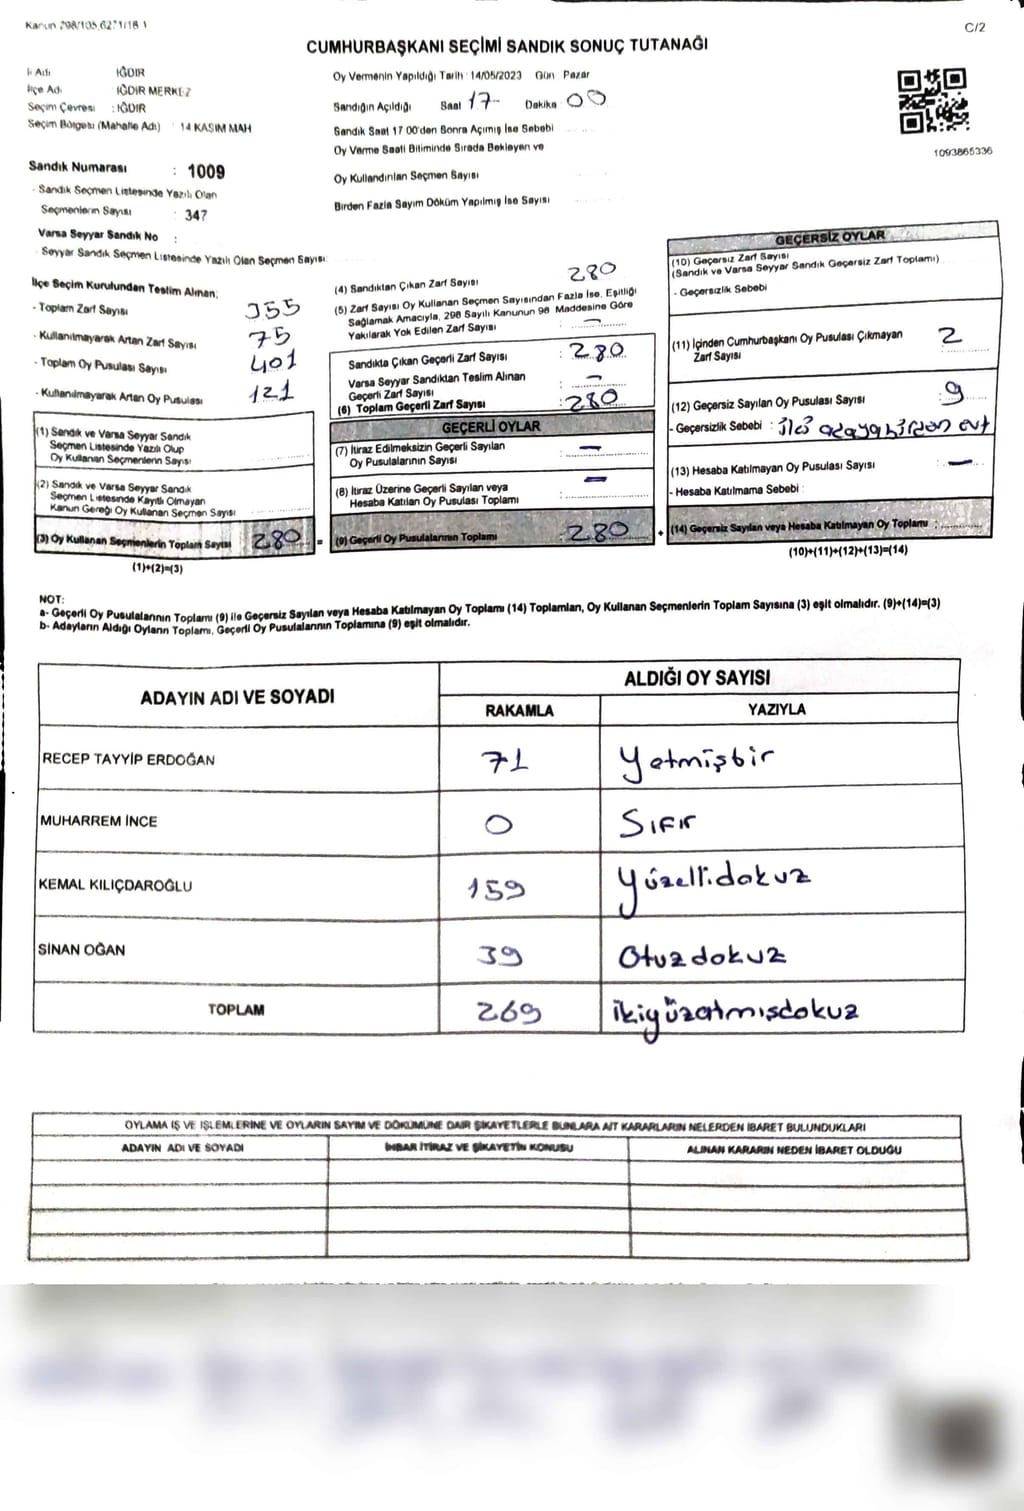 Kanun 298/105,6271/18.1
C/2
CUMHURBAŞKANI SEÇİMİ SANDIK SONUÇ TUTANAĞI
İl Adı : IĞDIR
İlçe Adı : IĞDIR MERKEZ
Seçim Çevresi : IĞDIR
Seçim Bölgesi (Mahalle Adı) : 14 KASIM MAH
Sandık Numarası : 1009
- Sandık Seçmen Listesinde Yazılı Olan
Seçmenlerin Sayısı : 347
Varsa Seyyar Sandık No :
- Seyyar Sandık Seçmen Listesinde Yazılı Olan Seçmen Sayısı:
Oy Vermenin Yapıldığı Tarih : 14/05/2023 Gün Pazar
Sandığın Açıldığı Saat 17 Dakika 00
Sandık Saat 17 00'den Sonra Açımış İse Sebebi
Oy Verme Saati Bitiminde Sırada Bekleyen ve
Oy Kullandırılan Seçmen Sayısı
Birden Fazla Sayım Döküm Yapılmış İse Sayısı
1093865336
İlçe Seçim Kurulundan Teslim Alınan;
- Toplam Zarf Sayısı 355
- Kullanılmayarak Artan Zarf Sayısı 75
- Toplam Oy Pusulası Sayısı 401
- Kullanılmayarak Artan Oy Pusulası 121
(1) Sandık ve Varsa Seyyar Sandık
Seçmen Listesinde Yazılı Olup
Oy Kullanan Seçmenlerin Sayısı
(2) Sandık ve Varsa Seyyar Sandık
Seçmen Listesinde Kayıtlı Olmayan
Kanun Gereği Oy Kullanan Seçmen Sayısı
(3) Oy Kullanan Seçmenlerin Toplam Sayısı 280 =
(1)+(2)=(3)
(4) Sandıktan Çıkan Zarf Sayısı 280
(5) Zarf Sayısı Oy Kullanan Seçmen Sayısından Fazla İse, Eşitliği
Sağlamak Amacıyla, 298 Sayılı Kanunun 98 Maddesine Göre
Yakılarak Yok Edilen Zarf Sayısı : -
Sandıkta Çıkan Geçerli Zarf Sayısı : 280
Varsa Seyyar Sandıktan Teslim Alınan
Geçerli Zarf Sayısı : -
(6) Toplam Geçerli Zarf Sayısı : 280
GEÇERLİ OYLAR
(7) İtiraz Edilmeksizin Geçerli Sayılan
Oy Pusulalarının Sayısı : -
(8) İtiraz Üzerine Geçerli Sayılan veya
Hesaba Katılan Oy Pusulası Toplamı : -
(9) Geçerli Oy Pusulalarının Toplamı : 280 +
GEÇERSİZ OYLAR
(10) Geçersiz Zarf Sayısı
(Sandık ve Varsa Seyyar Sandık Geçersiz Zarf Toplamı)
- Geçersizlik Sebebi
(11) İçinden Cumhurbaşkanı Oy Pusulası Çıkmayan
Zarf Sayısı 2
(12) Geçersiz Sayılan Oy Pusulası Sayısı : 9
- Geçersizlik Sebebi :
(13) Hesaba Katılmayan Oy Pusulası Sayısı : -
- Hesaba Katılmama Sebebi :
(14) Geçersiz Sayılan veya Hesaba Katılmayan Oy Toplamı :
(10)+(11)+(12)+(13)=(14)
NOT:
a- Geçerli Oy Pusulalarının Toplamı (9) ile Geçersiz Sayılan veya Hesaba Katılmayan Oy Toplamı (14) Toplamları, Oy Kullanan Seçmenlerin Toplam Sayısına (3) eşit olmalıdır. (9)+(14)=(3)
b- Adayların Aldığı Oyların Toplamı, Geçerli Oy Pusulalarının Toplamına (9) eşit olmalıdır.
ADAYIN ADI VE SOYADI ALDIĞI OY SAYISI
RAKAMLA YAZIYLA
RECEP TAYYİP ERDOĞAN 71 Yetmişbir
MUHARREM İNCE 0 Sıfır
KEMAL KILIÇDAROĞLU 159 Yüzellidokuz
SİNAN OĞAN 39 Otuzdokuz
TOPLAM 269 ikiyüzatmışdokuz
OYLAMA İŞ VE İŞLEMLERİNE VE OYLARIN SAYIM VE DÖKÜMÜNE DAİR ŞİKAYETLERLE BUNLARA AİT KARARLARIN NELERDEN İBARET BULUNDUKLARI
ADAYIN ADI VE SOYADI İHBAR İTİRAZ VE ŞİKAYETİN KONUSU ALINAN KARARIN NEDEN İBARET OLDUĞU